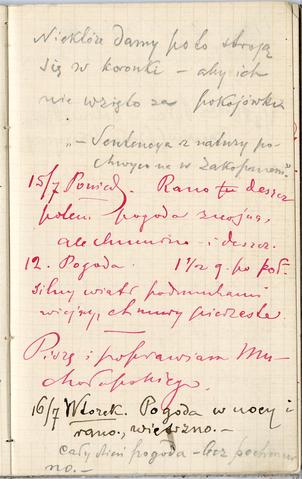 Niektóre damy po to stroją
się w koronki – aby ich
nie wzięto za pokojówki
"– Sentencya z natury po-
chwycona w Zakopanem."
15/7 Poniedz. Rano tu deszcz
potem pogoda znośna,
ale chmurno i deszcz.
12. Pogoda. 1 1/2 g. po poł.
silny wiatr podmuchami
wiejny, chmury pierzaste.
Piszę i poprawiam Mu-
16/7 Wtorek. Pogoda w nocy i
rano, wietrzno. –
cały dzień pogoda – lecz pochmur
no. –